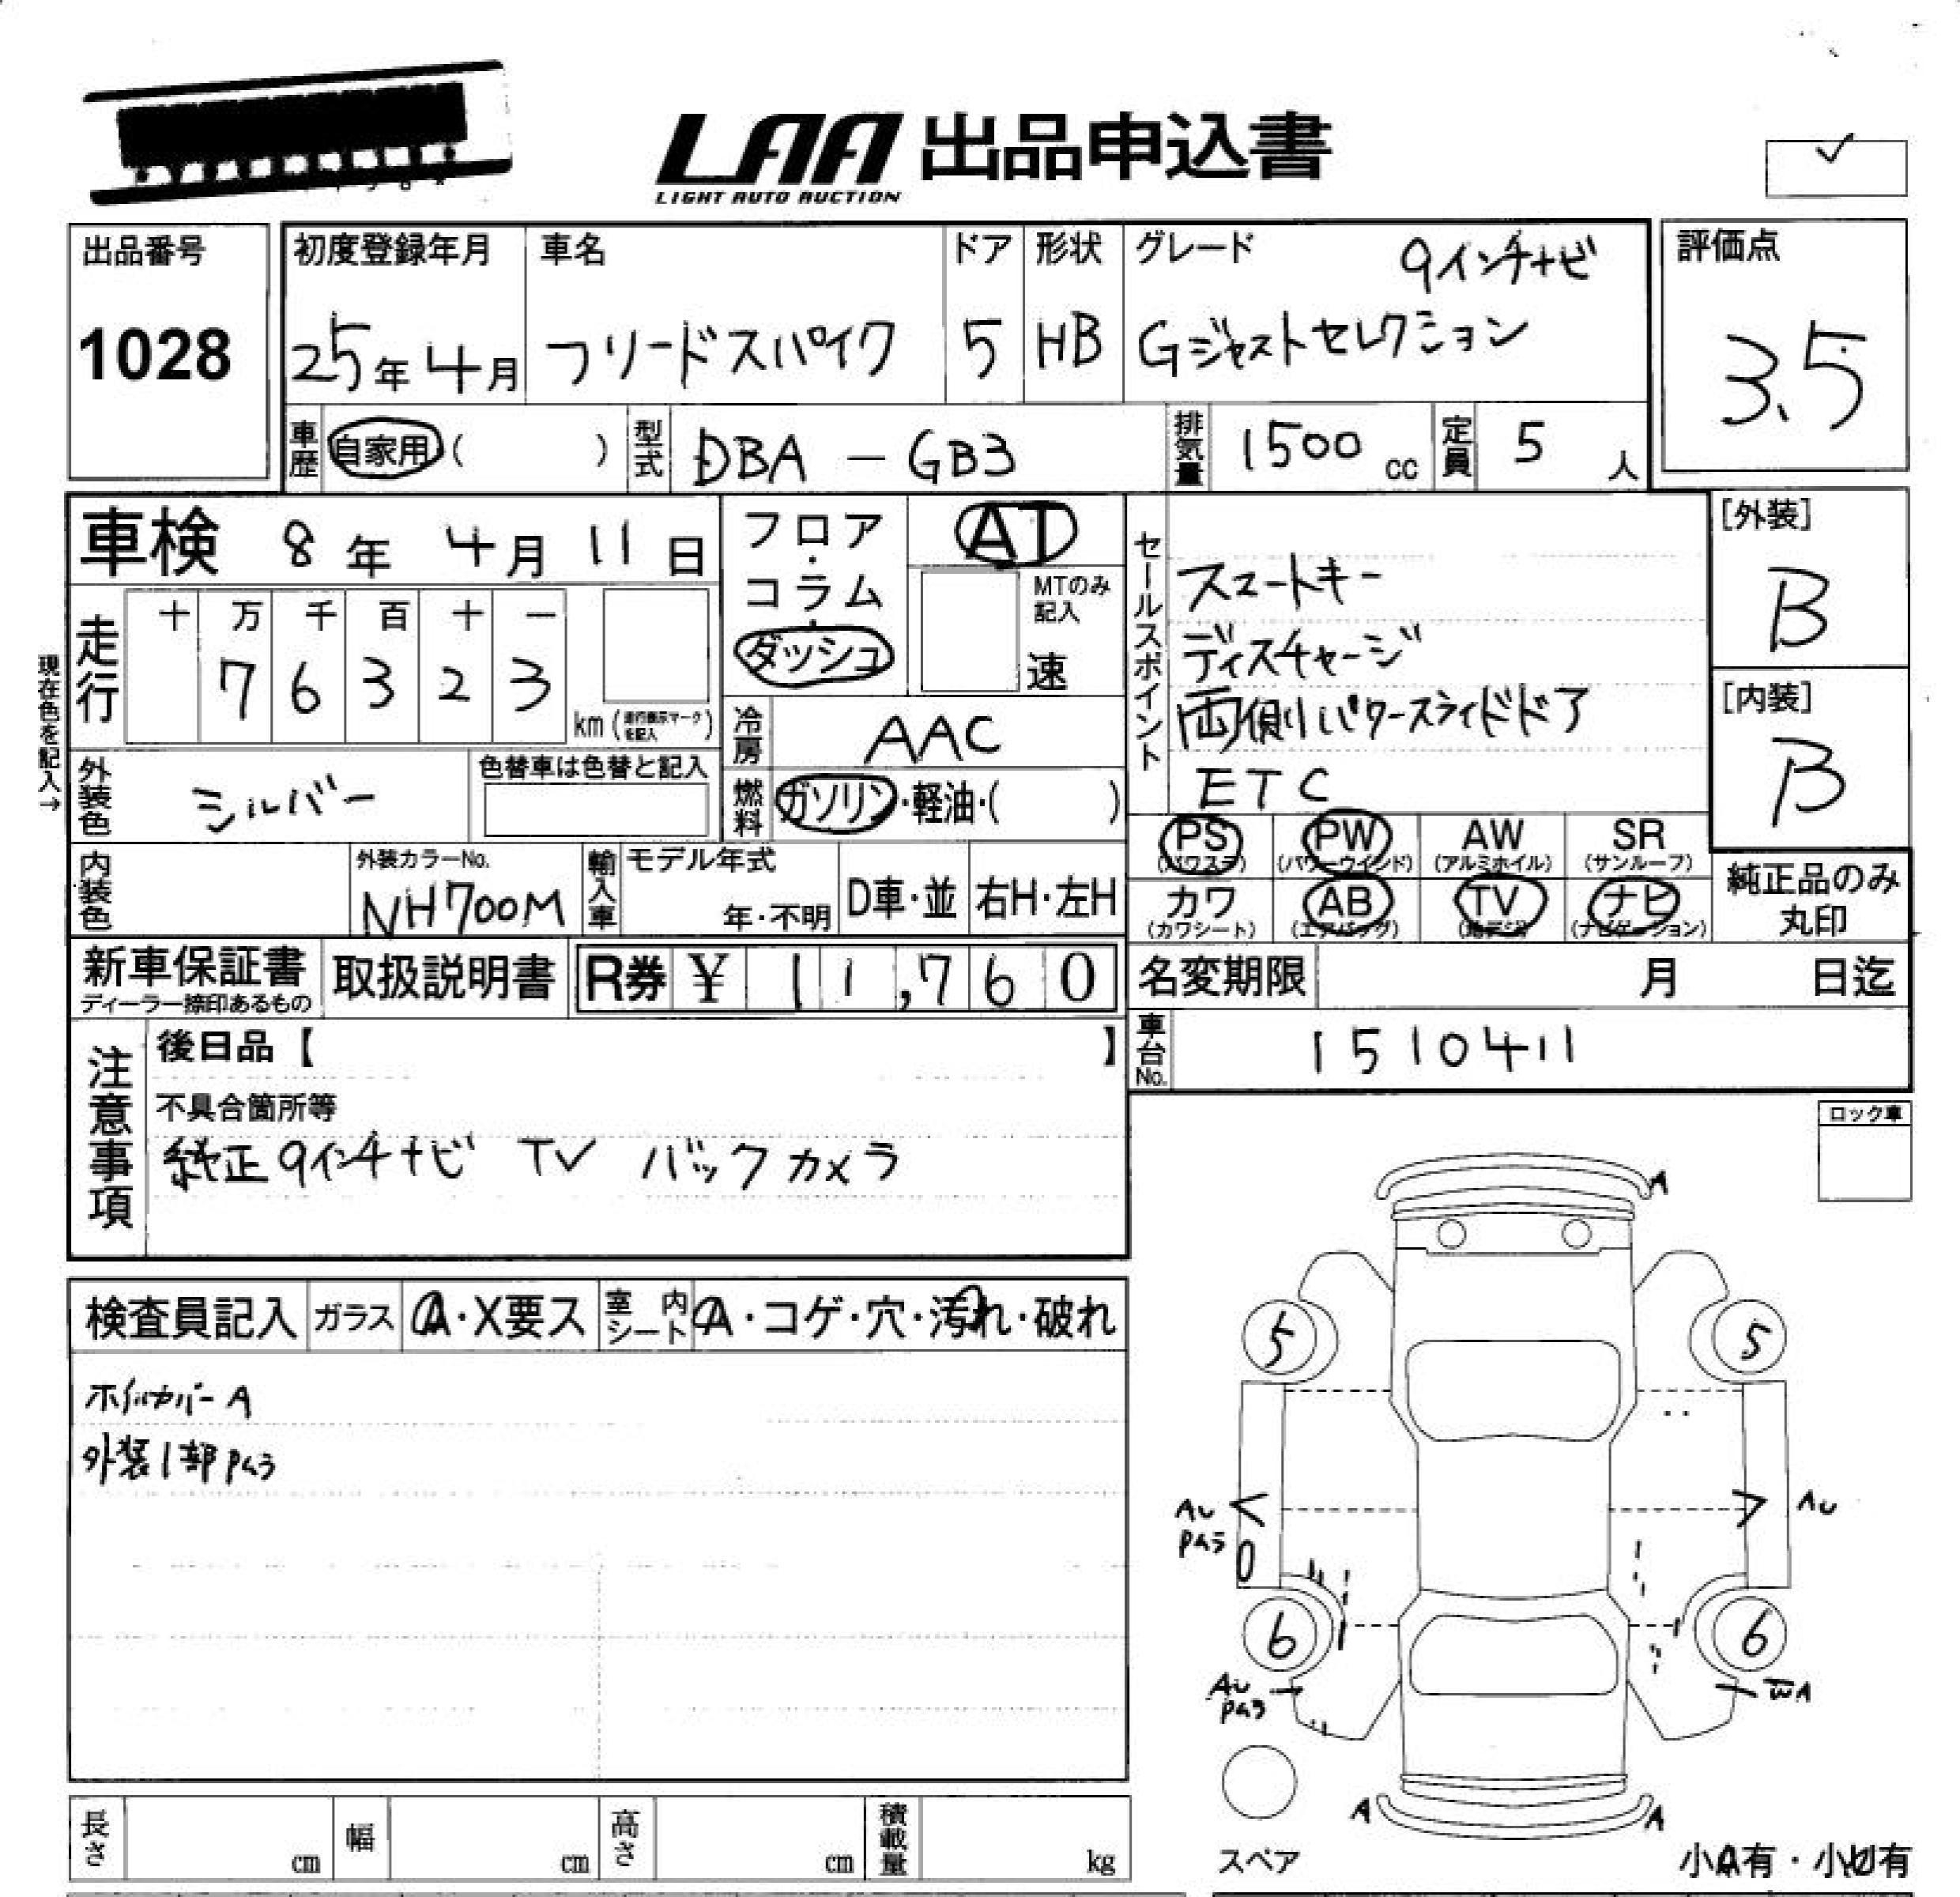 LAA 出品申込書
LIGHT AUTO AUCTION
出品番号
1028
初度登録年月
25年4月
車名
フリードスパイク
ドア
5
形状
HB
グレード
9インチナビ
Gジャストセレクション
評価点
3.5
車歴
自家用( )
型式
DBA - GB3
排気量
1500 cc
定員
5 人
車検 8年 4月 11日
走行
十 万 千 百 十 一
7 6 3 2 3
km(走行表示マークを記入)
現在色を記入→
外装色
シルバー
色替車は色替と記入
内装色
外装カラーNo.
NH700M
輸入車
モデル年式
年・不明
D車・並
右H・左H
フロア・コラム・ダッシュ
AT
MTのみ記入
速
冷房
AAC
燃料
ガソリン・軽油・( )
セールスポイント
スマートキー
ディスチャージ
両側パワースライドドア
ETC
[外装]
B
[内装]
B
PS
(パワステ)
PW
(パワーウインド)
AW
(アルミホイル)
SR
(サンルーフ)
カワ
(カワシート)
AB
(エアバッグ)
TV
(地デジ)
ナビ
(ナビゲーション)
純正品のみ
丸印
新車保証書
ディーラー捺印あるもの
取扱説明書
R券 ¥ 11,760
名変期限 月 日迄
車台No.
1510411
注意事項
後日品【 】
不具合箇所等
純正9インチナビ TV バックカメラ
ロック車
検査員記入
ガラス
A・X要ス
室内シート
A・コゲ・穴・汚れ・破れ
ホイルカバーA
外装1部Pム3
A
5
5
AU
Pム3
AU
6
6
AU
Pム3
WA
A
A
スペア
小A有・小U有
長さ cm
幅 cm
高さ cm
積載量 kg